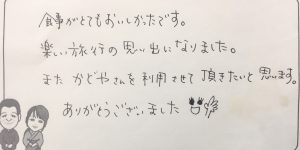 食事がとてもおいしかったです。
楽しい旅行の思い出になりました。
また かどやさんを利用させて頂きたいと思います。
ありがとうございました